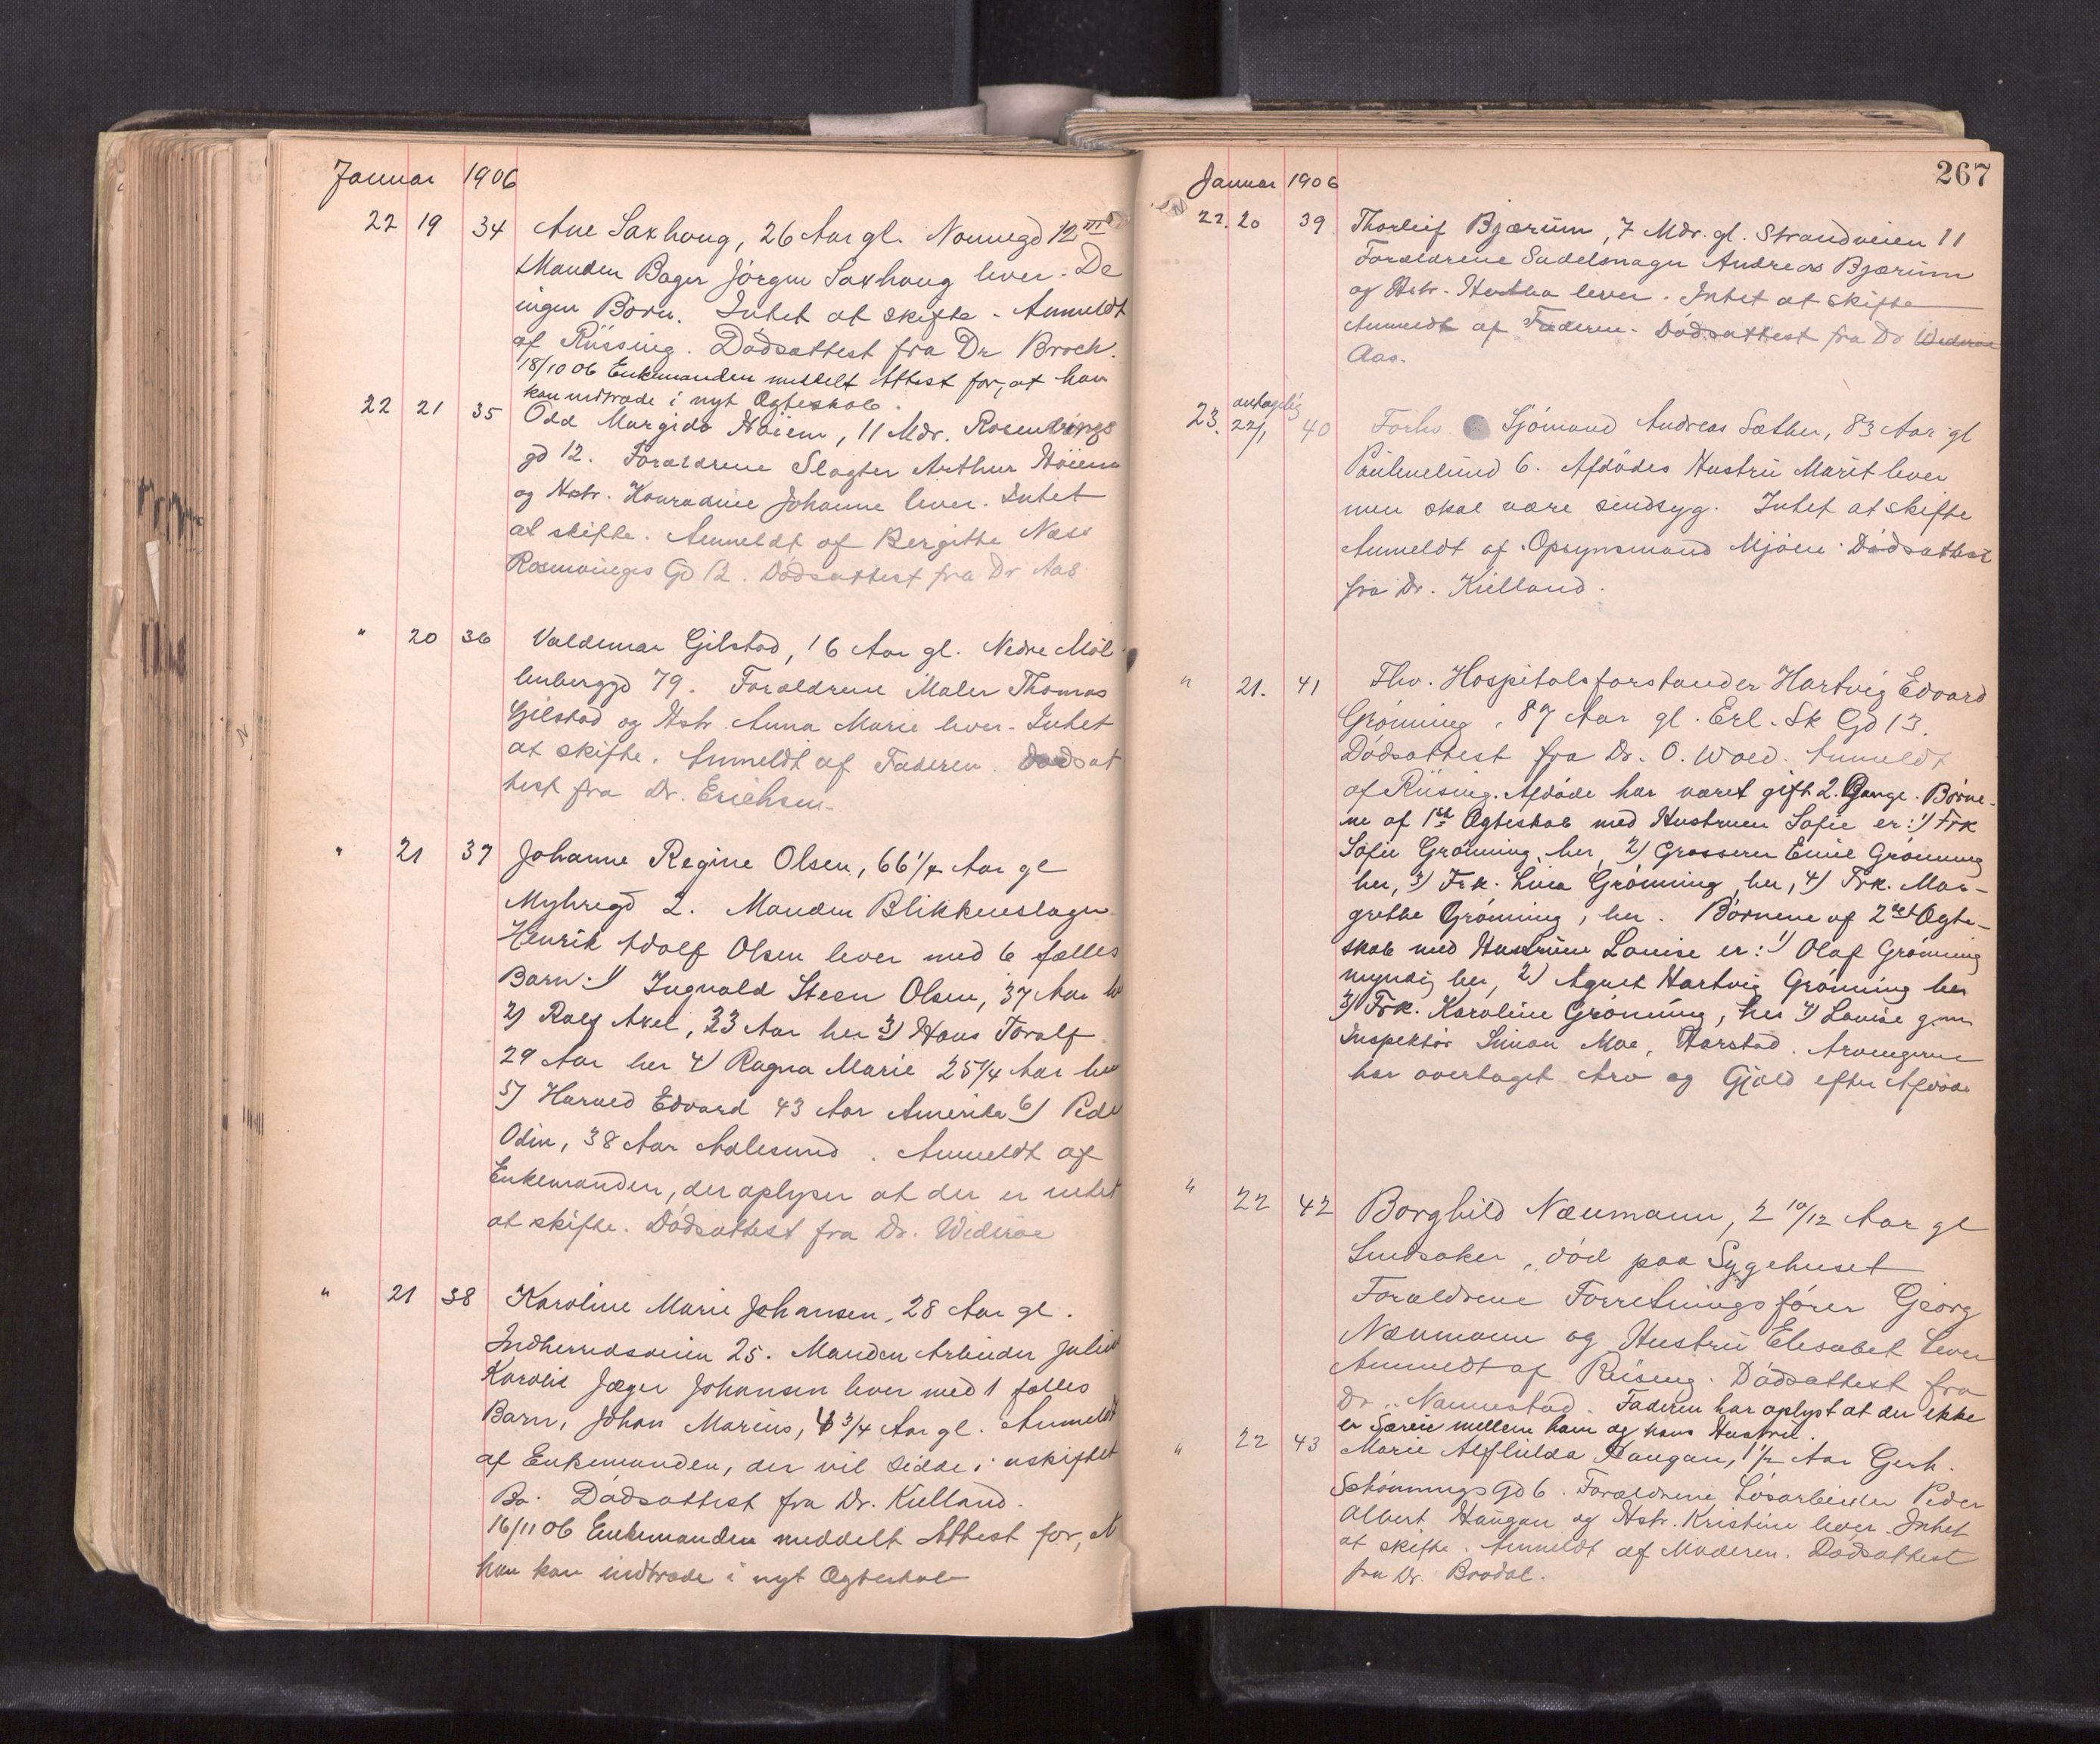 Januar 1906
22 19 34 Ane Saxhoug, 26 Aar gl. Nonnegd 12
Manden Bager Jörgen Saxhoug lever. De
ingen Börn. Intet at skifte. Anmeldt
af Riising. Dödsattest fra Dr Broch.
18/10 06 Enkemanden meddelt Attest for, at han
kan indtræde i nyt Ægteskab.
22 21 35 Odd Margido Höiem, 11 Mdr. Rosenborgs
gd 12. Forældrene Slagter Arthur Höiem
og Hstr. Konradine Johanne lever. Intet
at skifte. Anmeldt af Bergitte Næss
Gd 12. Dödsattest fra Dr Aas
" 20 36 Valdemar Gilstad, 16 Aar gl. Nedre Möl
lenberggd 79. Forældrene Maler Thomas
Gilstad og Hstr. Anna Marie lever. Intet
at skifte. Anmeldt af Faderen. Dödsat
test fra Dr. Erichsen
" 21 37 Johanne Regine Olsen, 66 1/4 Aar gl
Myhregd 2. Manden Blikkenslager
Henrik Adolf Olsen lever med 6 fælles
Barn: 1) Ingvald Steen Olsen, 37 Aar he
2) Rolf Axel, 33 Aar her 3) Hans Toralf
29 Aar her 4) Ragna Marie 25 1/4 Aar her
5) Harald Edvard 43 Aar Amerika 6) Peder
Odin, 38 Aar Aalesund. Anmeldt af
Enkemanden, der oplyser at der er intet
at skifte. Dödsattest fra Dr. Wideröe
" 21 38 Karoline Marie Johansen, 28 Aar gl.
Indherredsveien 25. Manden Arbeider Julius
Karolis Jæger Johansen lever med 1 fælles
Barn, Johan Marius, 3/4 Aar gl. Anmeldt
af Enkemanden, der vil sidde i uskiftet
Bo. Dödsattest fra Dr. Kielland.
16/11 06 Enkemanden meddelt Attest for, at
han kan indtræde i nyt Ægteskab
267
Januar 1906
22. 20 39 Thorleif Bjærum, 7 Mdr. gl. Strandveien 11
Forældrene Sadelmager Andreas Bjærum
og Hstr. Hertha lever. Intet at skifte
Anmeldt af Faderen. Dödsattest fra Dr Wideröe
Aas.
23. antagelig 22/1 40 Forhv. Sjömand Andreas Sæther, 83 Aar gl
Paulinelund 6. Afdödes Hustru Marit lever
men skal være sindsyg. Intet at skifte
Anmeldt af Opsynsmand Mjöen. Dödsattest
fra Dr. Kielland.
" 21. 41 Fhv. Hospitalsforstander Hartvig Edvard
Grönning, 87 Aar gl. Erl. Sk Gd 13.
Dödsattest fra Dr. O. Wold. Anmeldt
af Riising. Afdöde har været gift 2 Gange. Börne-
ne af 1st Ægteskab med Hustruen Sofie er: 1) Frk
Sofie Grönning, her, 2) Grosserer Emil Grönning
her, 3) Frk. Lina Grönning, her, 4) Frk. Mar-
grethe Grönning, her. Börnene af 2det Ægte-
skab med Hustruen Louise er: 1) Olaf Grönning
myndig her, 2) Agent Hartvig Grönning her
3) Frk. Karoline Grönning, her 4) Louise g. m.
Inspektör Simon Moe, Harstad. Arvingerne
har overtaget Arv og Gjæld efter Afdöde
" 22 42 Borghild Næumann, 2 10/12 Aar gl
Sundsaker, död paa Sygehuset
Forældrene Forretningsförer Georg
Næumann og Hustru Elisabet lever
Anmeldt af Riising. Dödsattest fra
Dr. Nannestad. Faderen har oplyst at der ikke
er Særeie mellem ham og hans Hustru.
" 22 43 Marie Alfhilda Haugan, 1 1/2 Aar Gerh.
Schönnings Gd 6. Forældrene Lösarbeider Peder
Albert Haugan og Hstr. Kristine lever. Intet
at skifte. Anmeldt af Moderen. Dödsattest
fra Dr. Brodal.